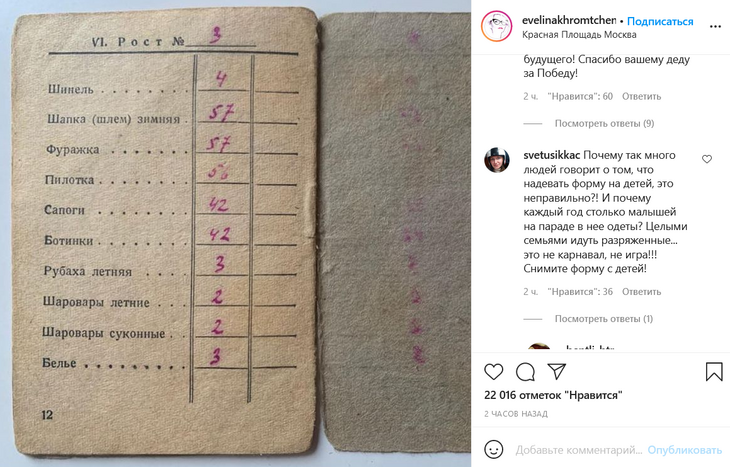 VI. Рост № 3
Шинель . . . . . . . . 4
Шапка (шлем) зимняя . 57
Фуражка . . . . . . . 57
Пилотка . . . . . . .
Сапоги . . . . . . . 42
Ботинки . . . . . . . 42
Рубаха летняя . . . . 3
Шаровары летние . . . 2
Шаровары суконные . . 2
Белье . . . . . . . . . 3
12
evelinakhromtchen • Подписаться •••
Красная Площадь Москва
будущего! Спасибо вашему деду
за Победу!
2 ч. "Нравится": 60 Ответить
Посмотреть ответы (9)
svetusikkac Почему так много
людей говорит о том, что
надевать форму на детей, это
неправильно?! И почему
каждый год столько малышей
на параде в нее одеты? Целыми
семьями идут разряженные...
это не карнавал, не игра!!!
Снимите форму с детей!
2 ч. "Нравится": 36 Ответить
Посмотреть ответы (1)
22 016 отметок "Нравится"
2 ЧАСОВ НАЗАД
Добавьте комментарий... Опубликовать